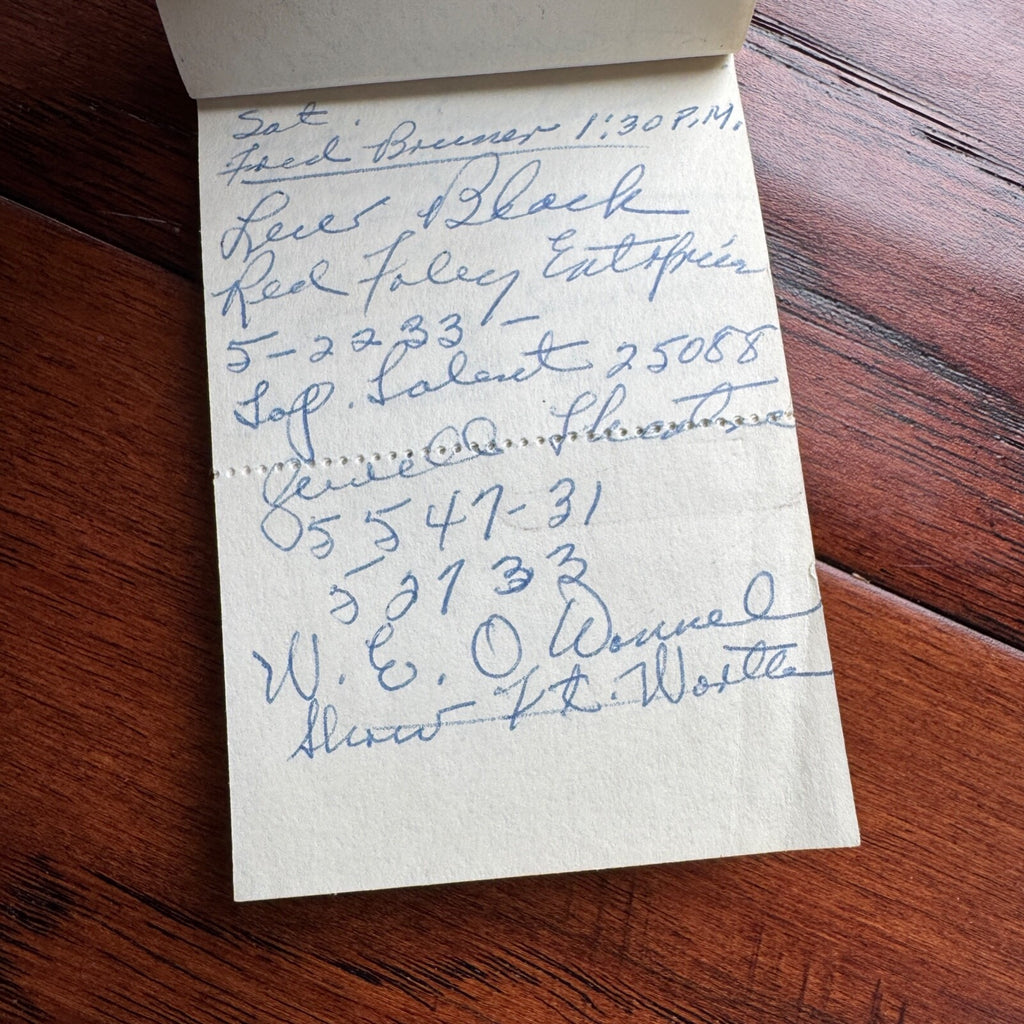 Sat.
Fred Bruner 1:30 P.M.
Lew Black
Red Foley Entrprise
5-2233-
Top. Talent 25088
Jewell Theatre
5547-31
52733
W. E. O Donnel
Show Ft. Worth